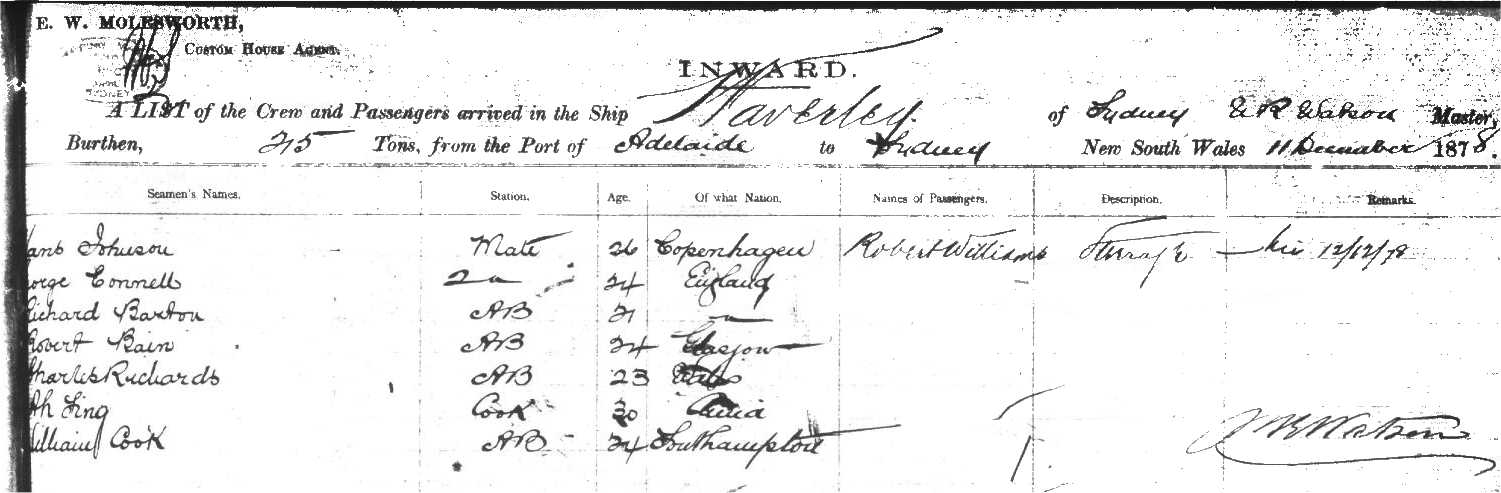 E. W. MOLESWORTH,
CUSTOM HOUSE AGENT.
SYDNEY
INWARD.
A LIST of the Crew and Passengers arrived in the Ship Waverley of Sydney W R Watson Master,
Burthen, 215 Tons, from the Port of Adelaide to Sydney New South Wales 11 December 1878.
Seamen's Names. Station. Age. Of what Nation. Names of Passengers. Description. Remarks.
Johnson Mate 26 Copenhagen Robert Williams Steerage 12/12/78
orge Connell 2 24 England
ichard Barton AB 21
Robert Bain AB 24 Glasgow
Charles Richards AB 23 Wales
Ah Ling Cook 30 China
William Cook AB 24 Southampton
W R Watson